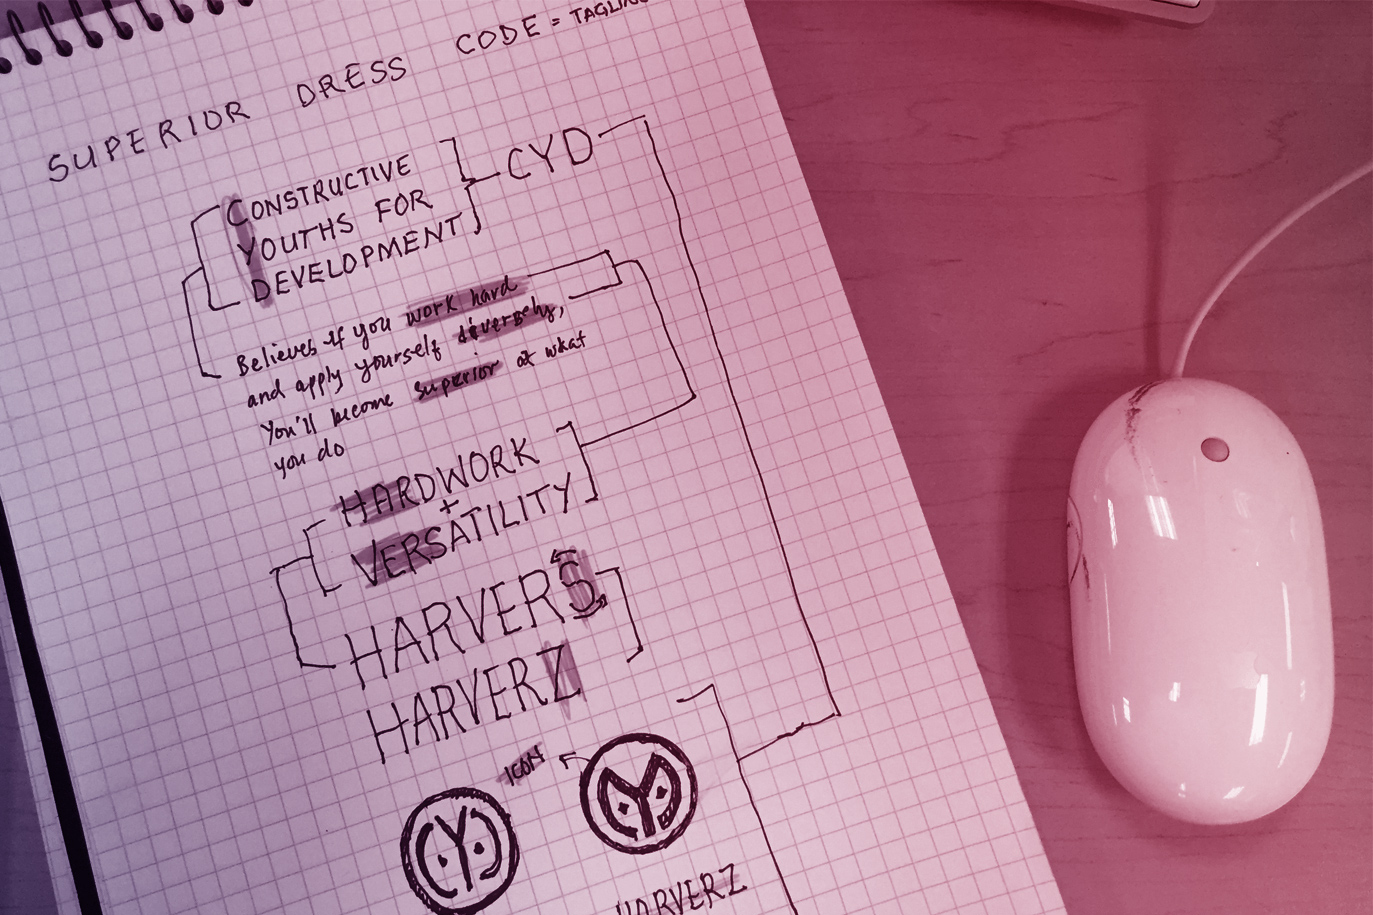 SUPERIOR DRESS CODE = TAGLINE
CONSTRUCTIVE
YOUTHS FOR
DEVELOPMENT
CYD
Believes if you work hard
and apply yourself diversely,
You'll become superior at what
you do
HARDWORK
+
VERSATILITY
HARVERS
HARVERZ
ICON
CYD
HARVERZ